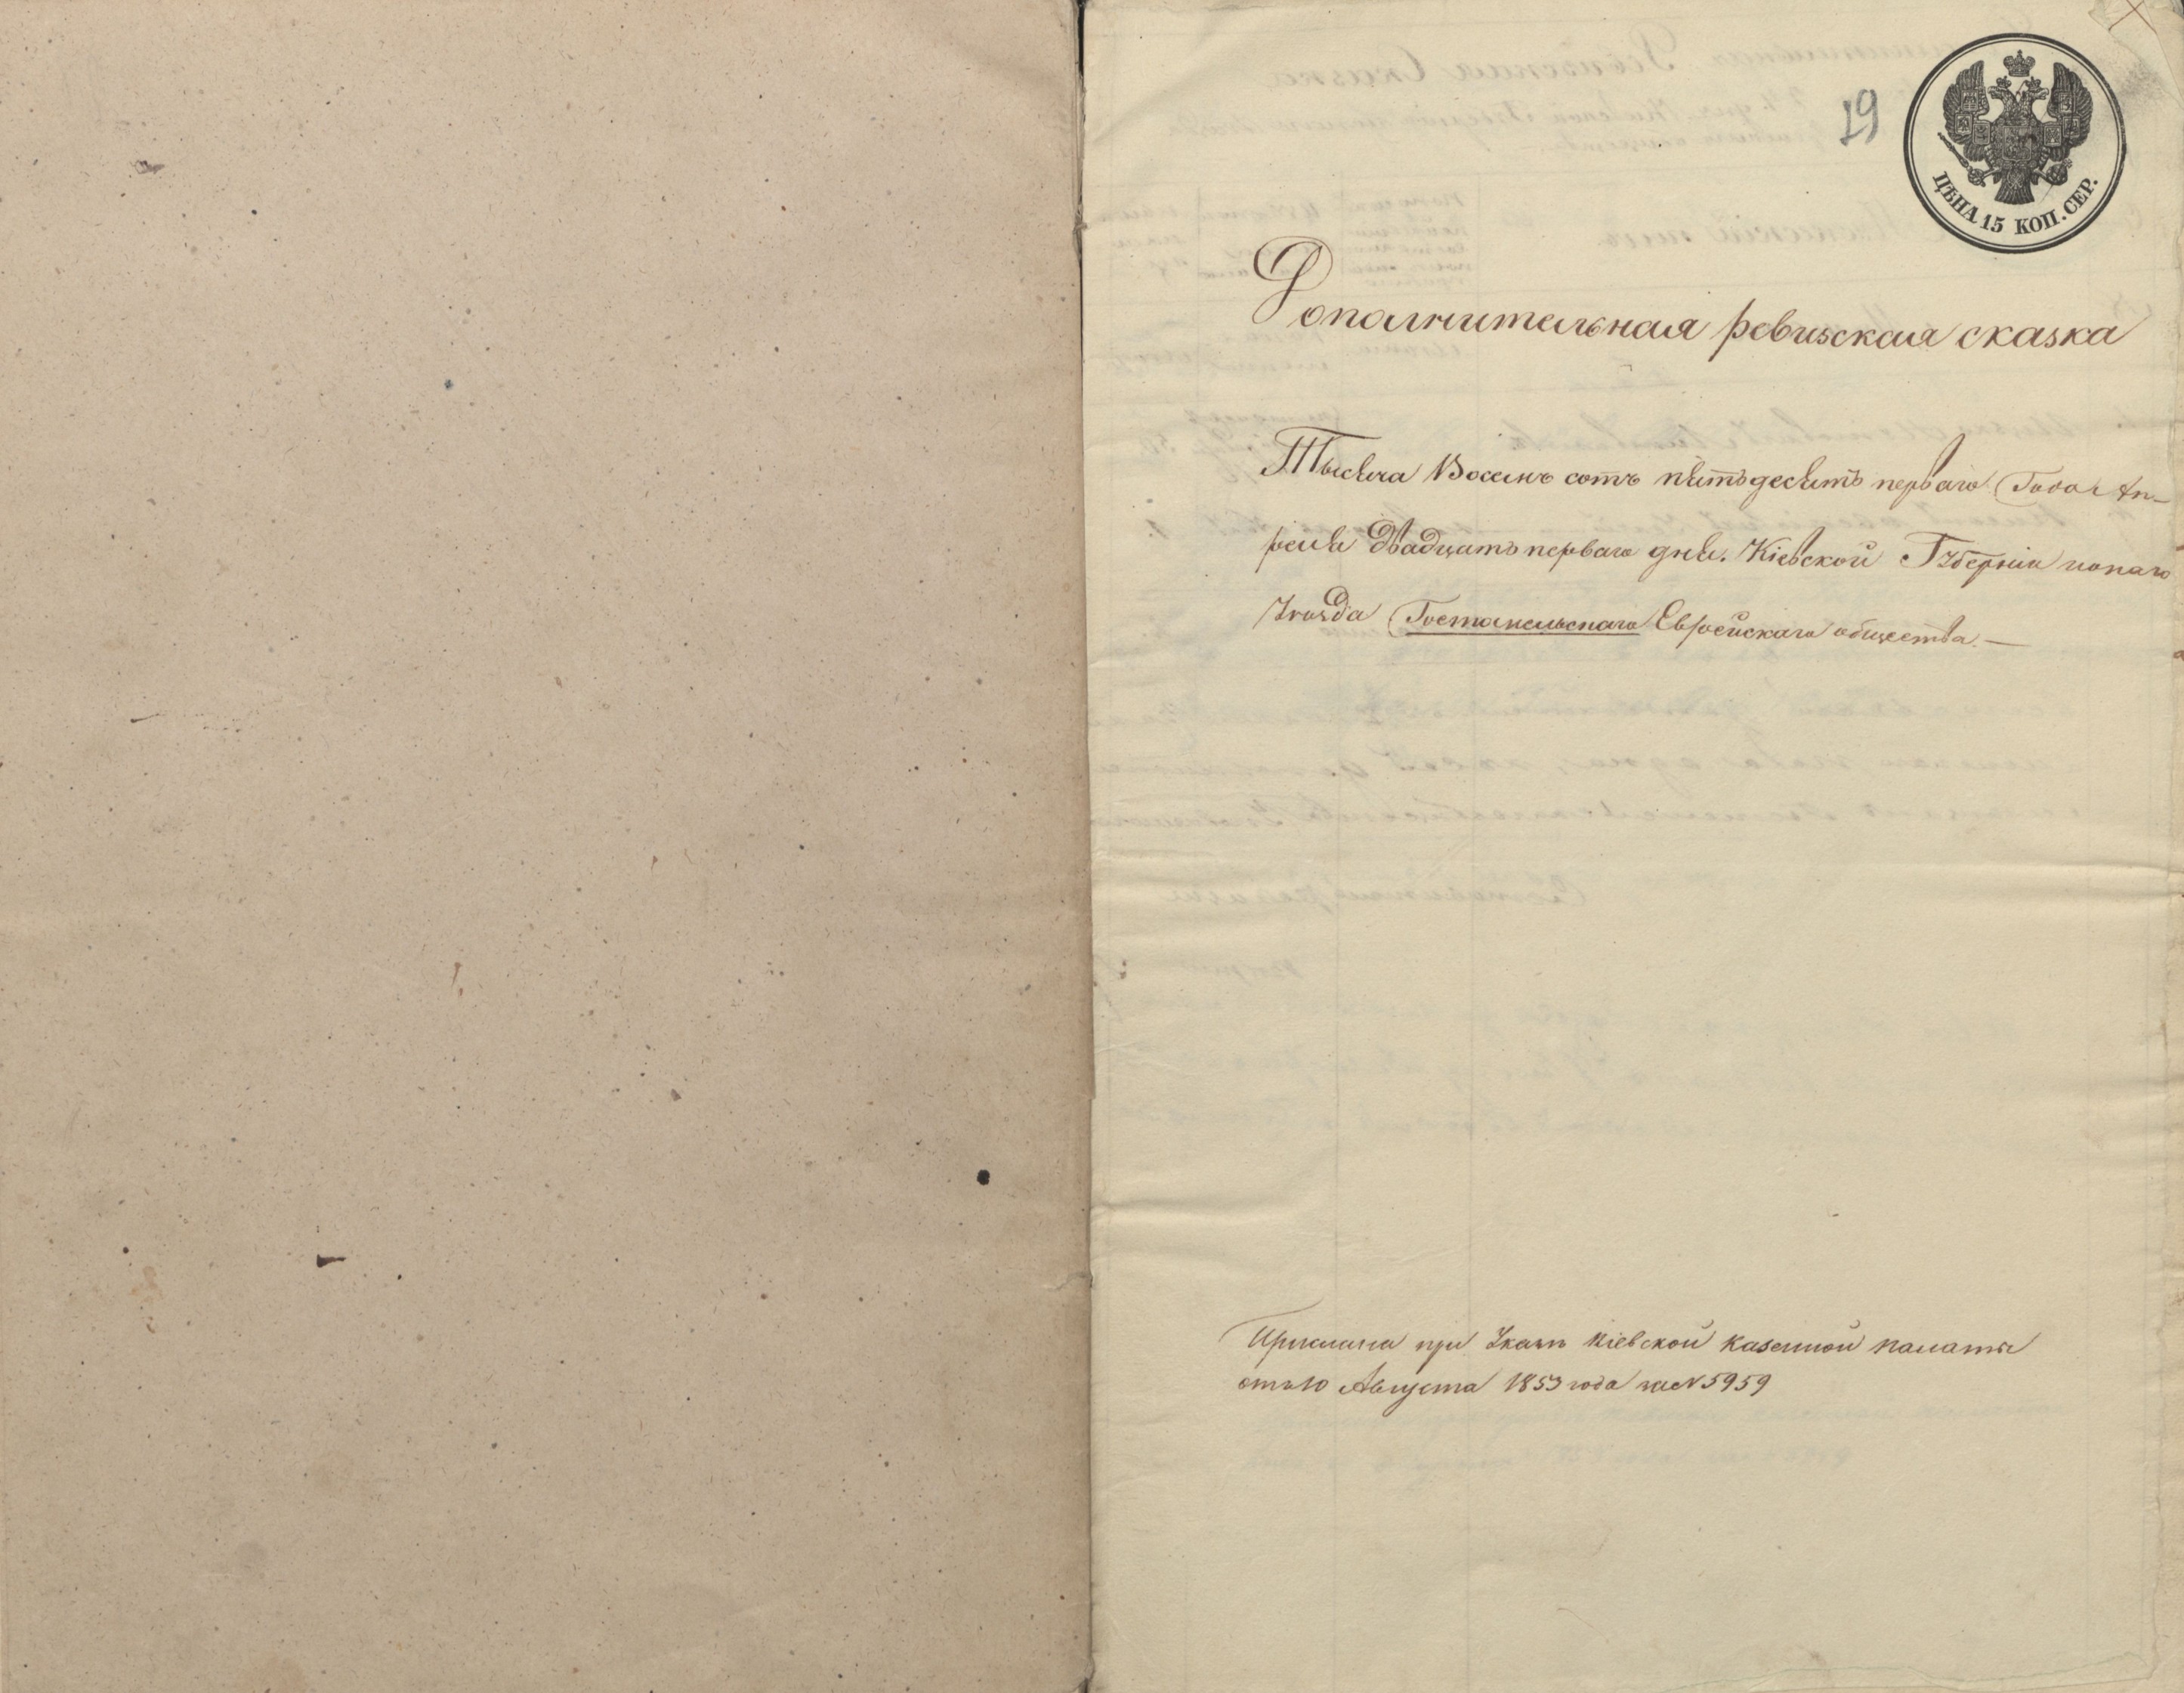 19
ЦѢНА 15 КОП. СЕР.
Дополнительная ревизская сказка
Тысяча Восемь сотъ пятьдесятъ перваго Года Ап-
реля двадцать перваго дня. Кіевской Губерніи тогожъ
Уѣзда Гостомельскаго Еврейскаго общества. —
Прислана при Указѣ Кіевской Казенной палаты
отъ 10 Августа 1853 года за № 5959